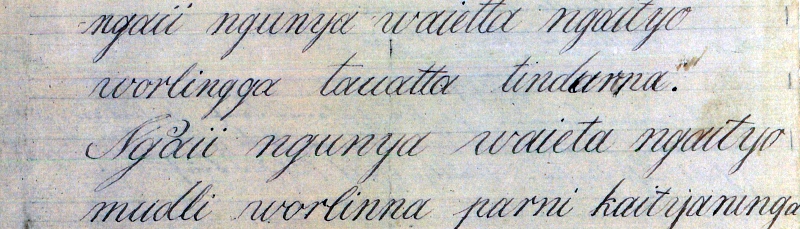 ngaii ngunya waietta ngaityo
worlingga tauatta tindarna.
Ngaii ngunya waieta ngaityo
mudli worlinna parni kaityaninga